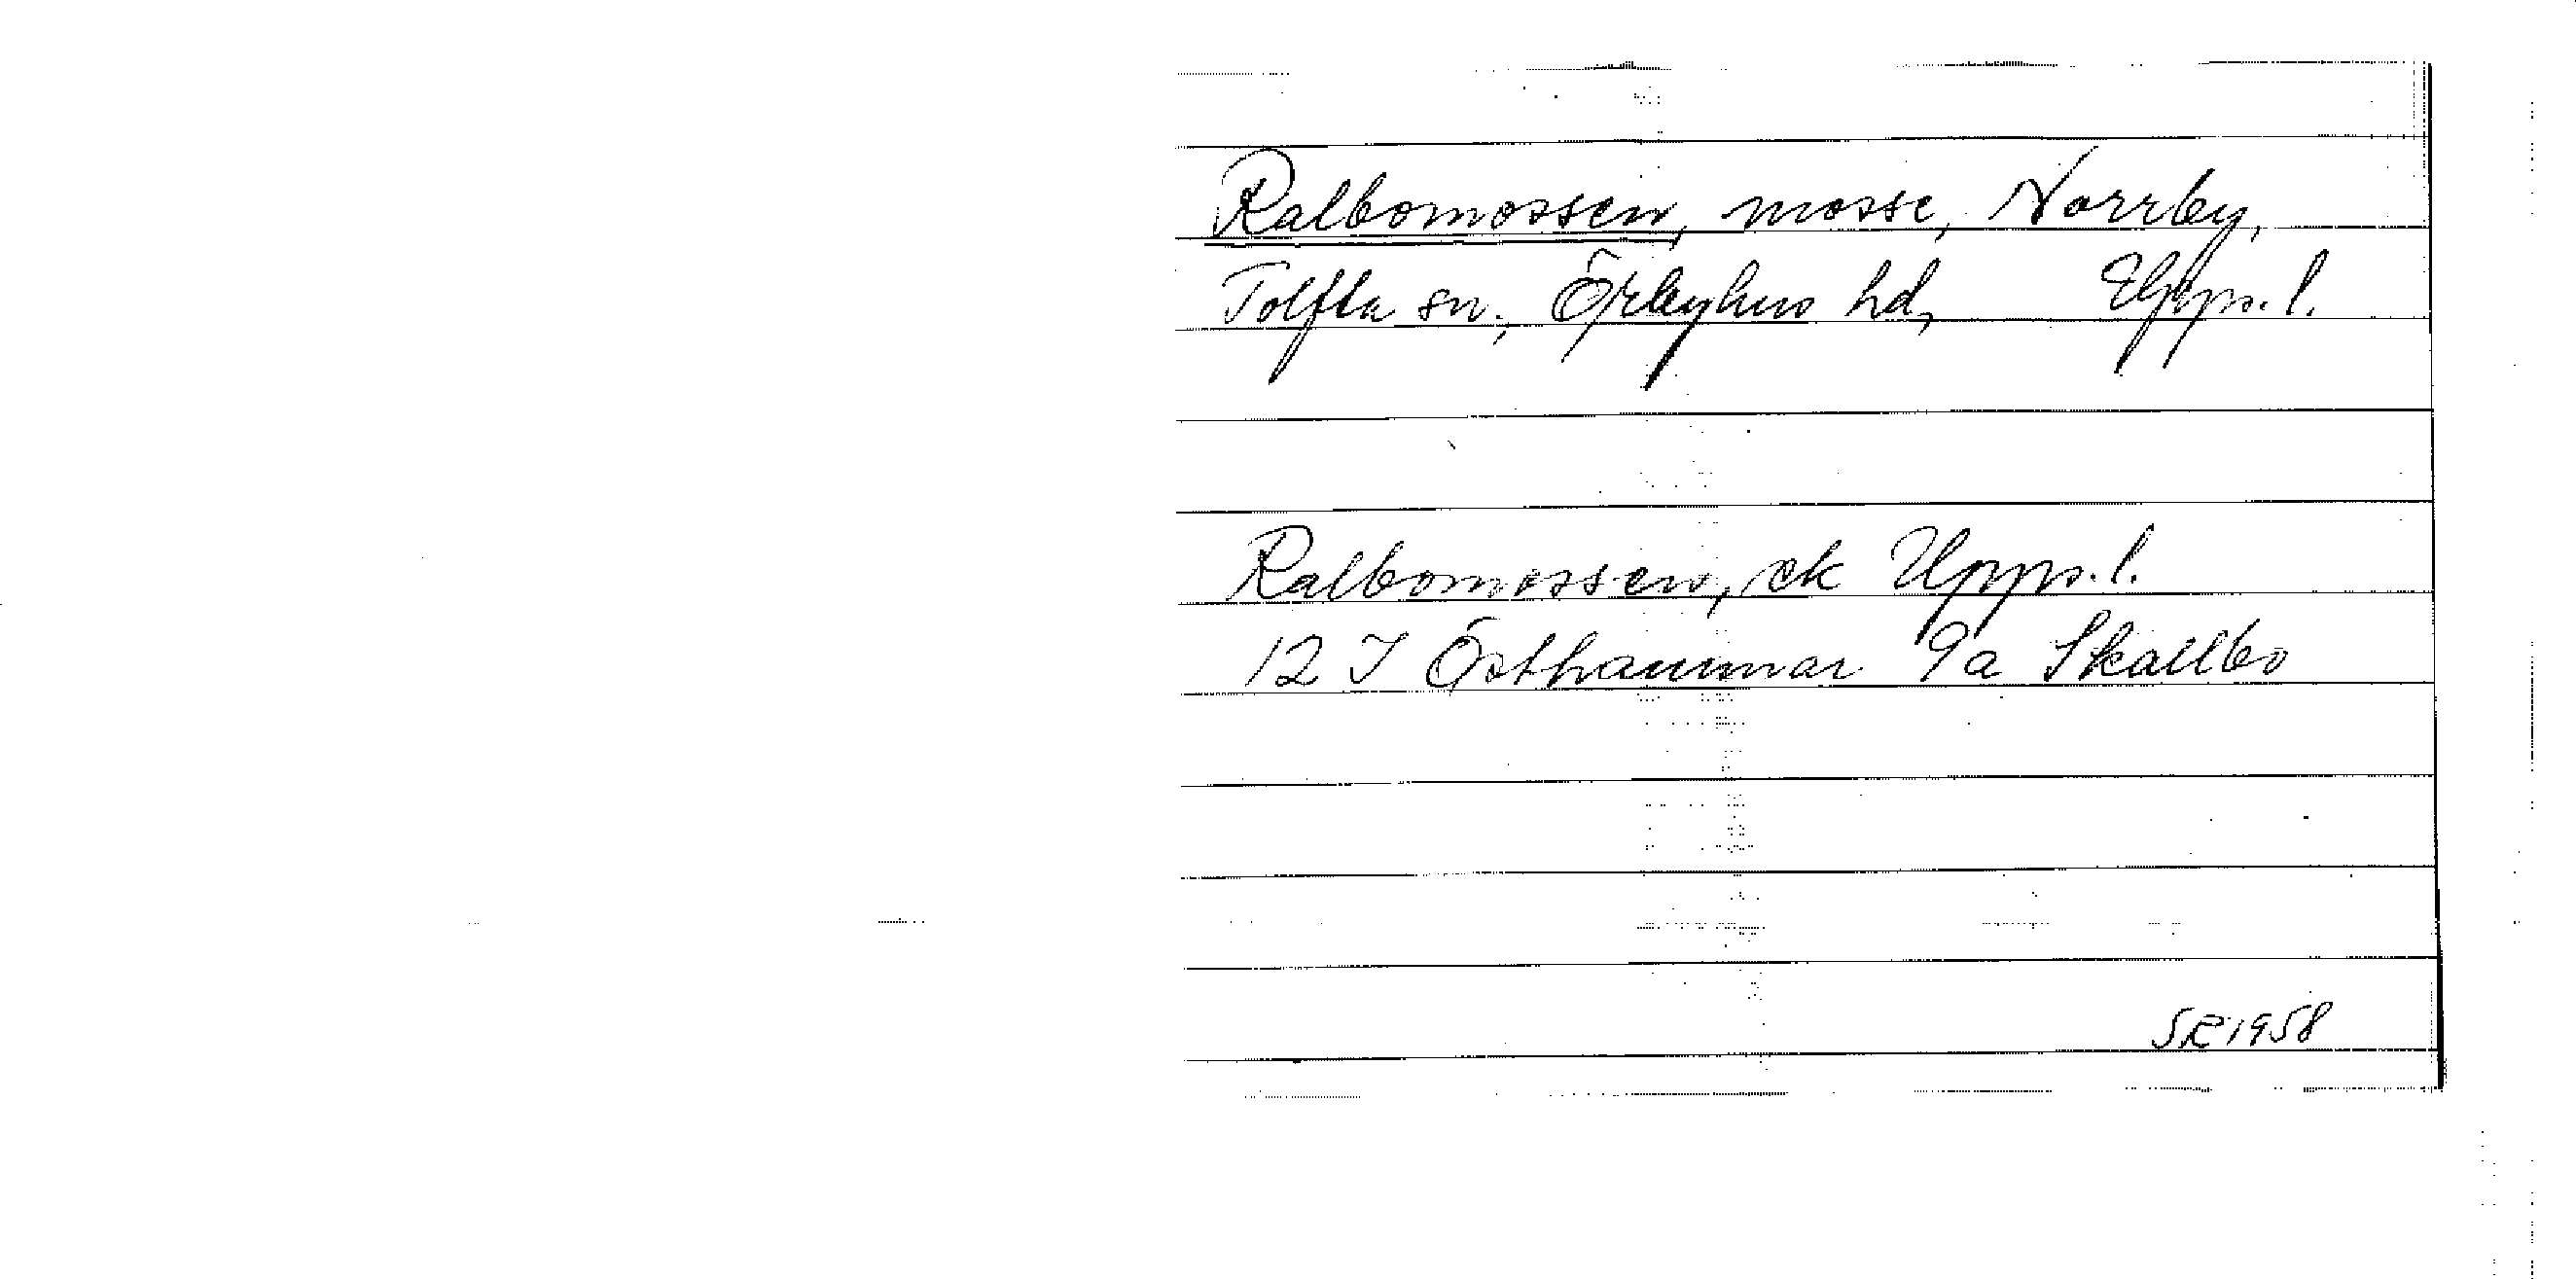 Ralbomossen, mosse, Norrby,
Tolfta sn., Örbyhus hd, Upps. l.
Ralbomossen, ek Upps. l.
12 I Östhammar 9a Skallbo
SR 1958